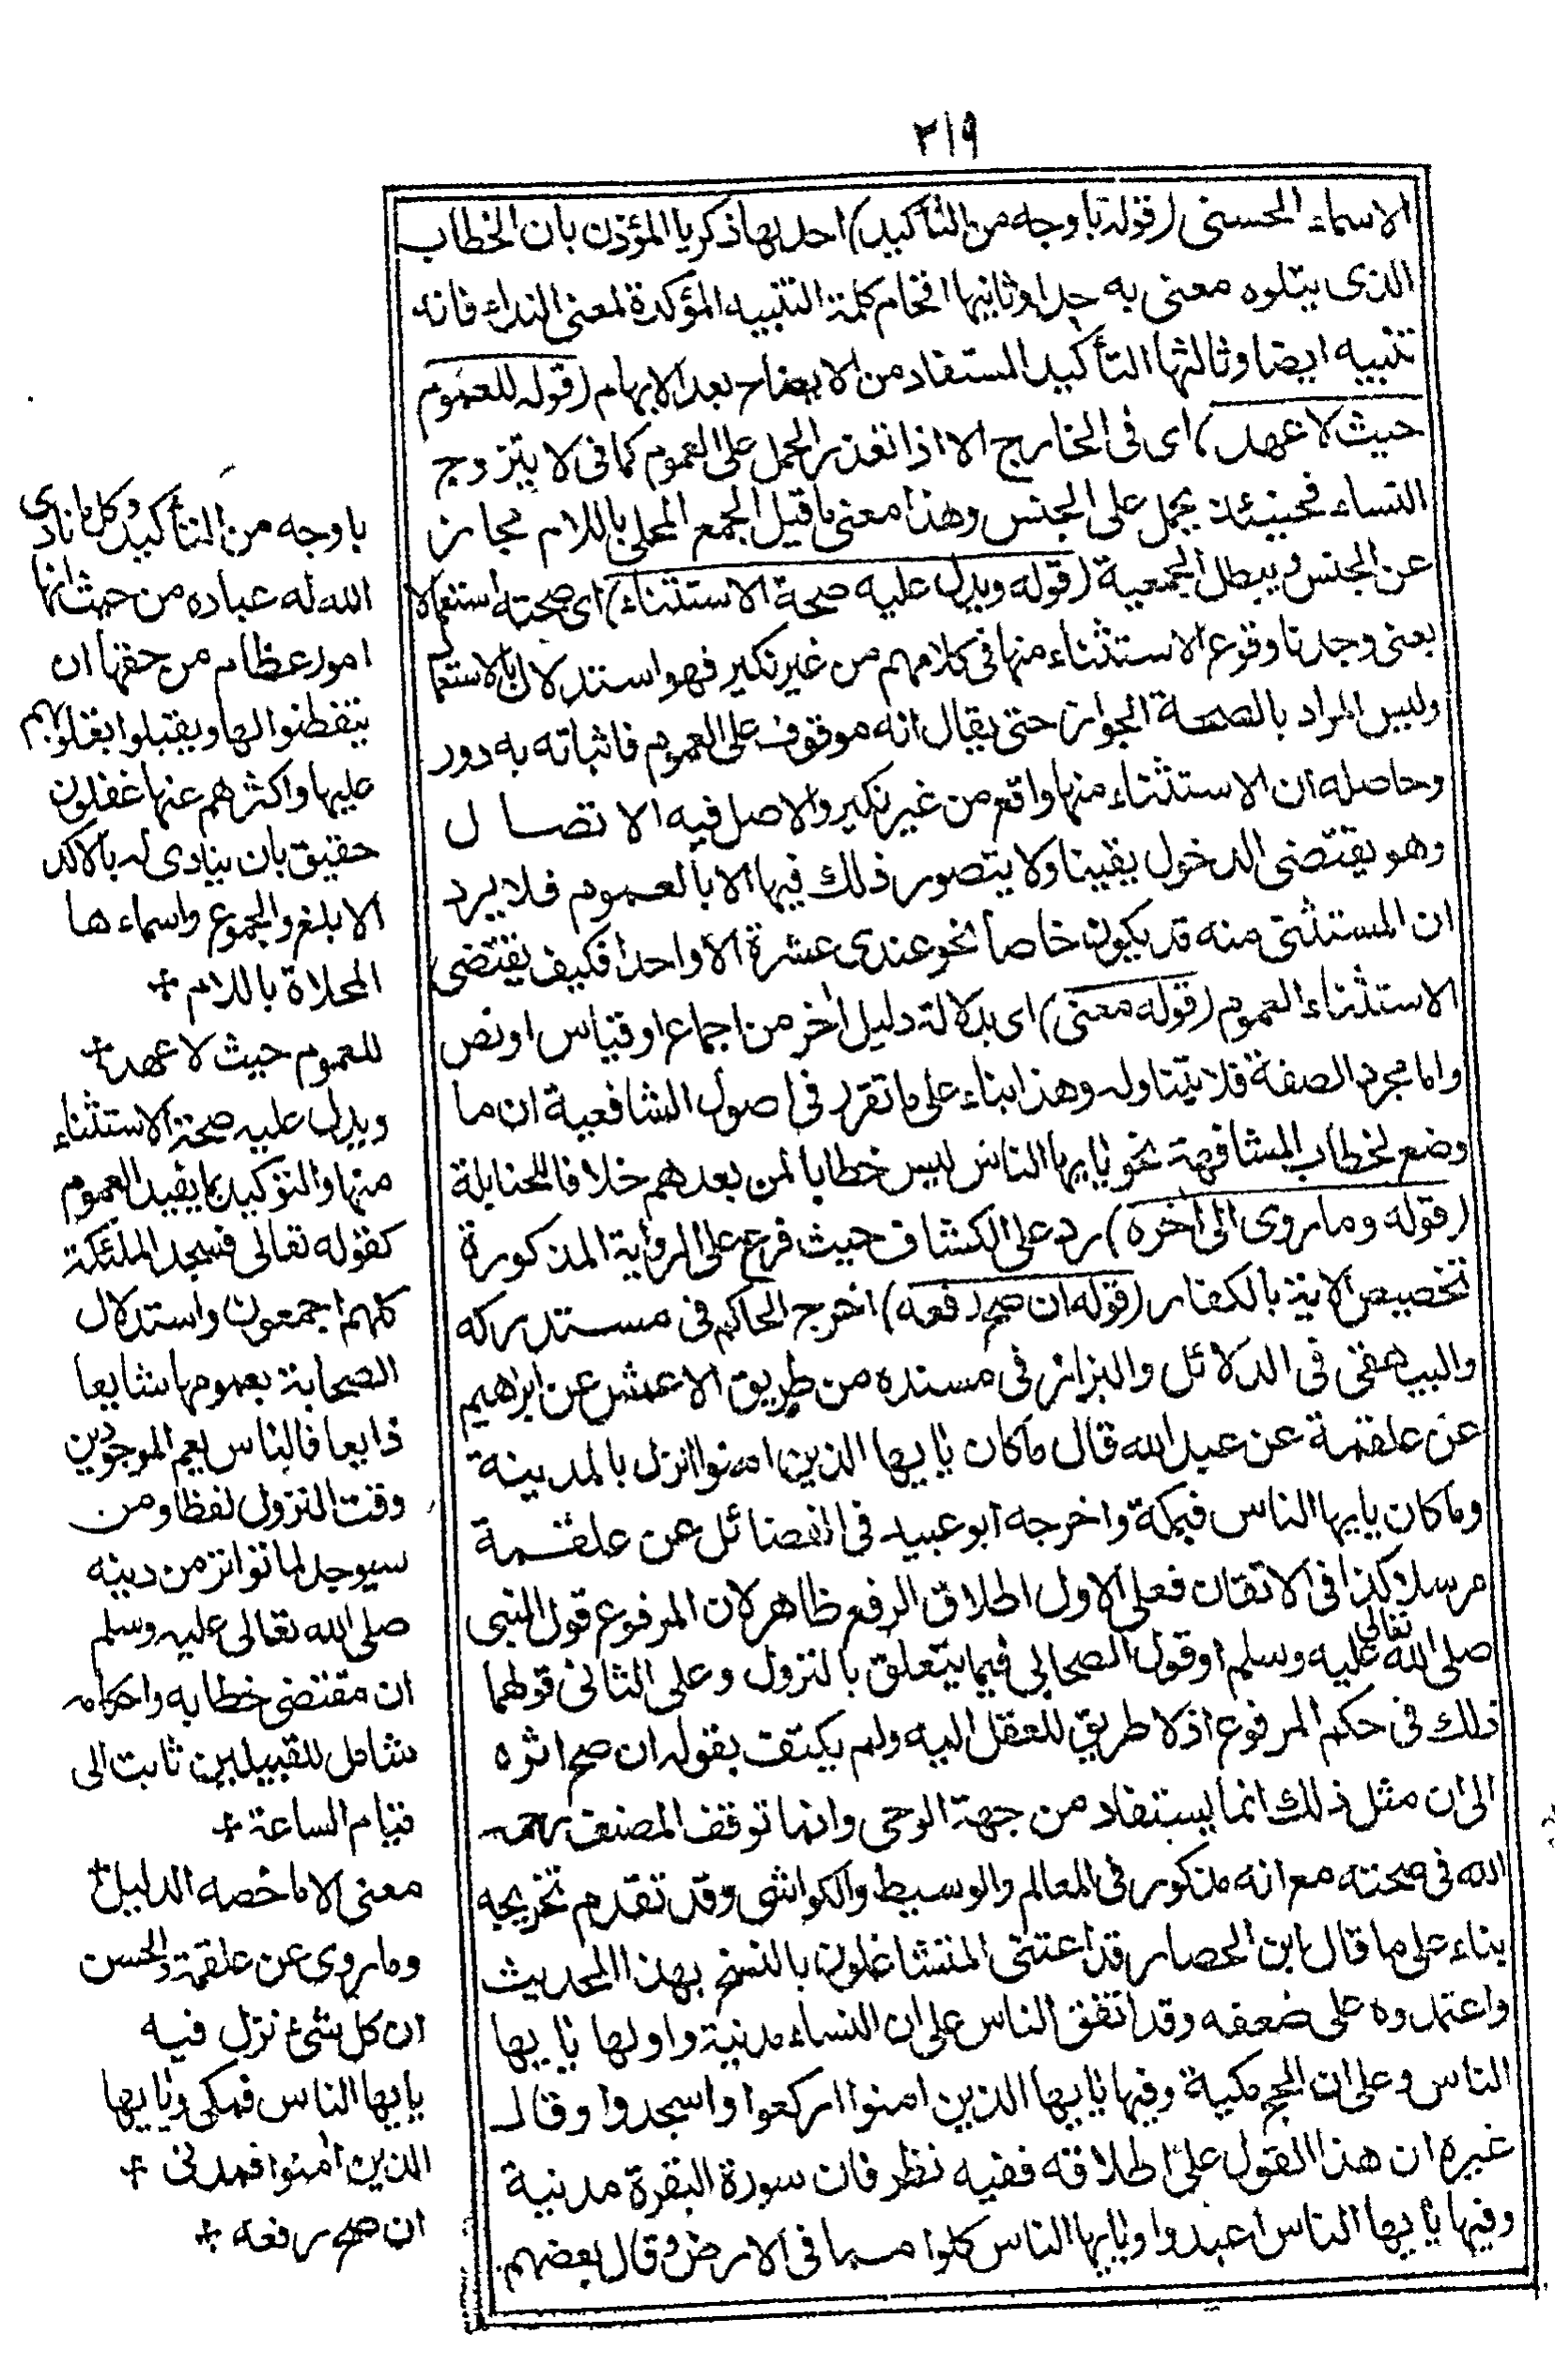 ٣١٩
الاسماء الحسنى (قوله باوجه من التأكيد) احدها ذكر يا المؤذن بان الخطاب
الذى يتلوه معنى به جدا وثانيها اقحام كلمة التنبيه المؤكدة لمعنى النداء فانه
تنبيه ايضا وثالثها التأكيد المستفاد من الايضاح بعد الابهام (قوله للعموم
حيث لا عهد) اى فى الخارج الا اذا تعذر الحمل على العموم كما فى لا يتزوج
النساء فحينئذ يحمل على الجنس وهذا معنى ما قيل الجمع المحلى باللام مجاز
عن الجنس ويبطل الجمعية (قوله ويدل عليه صحة الاستثناء) اى صحته استعمالا
يعنى وجدنا وقوع الاستثناء منها فى كلامهم من غير نكير فهو استدلال بالاستعمال
وليس المراد بالصحة الجواز حتى يقال انه موقوف على العموم فاثباته به دور
وحاصله ان الاستثناء منها واقع من غير نكير والاصل فيه الاتصال
وهو يقتضى الدخول يقينا ولا يتصور ذلك فيها الا بالعموم فلا يرد
ان المستثنى منه قد يكون خاصا نحو عندى عشرة الا واحدا فكيف يقتضى
الاستثناء العموم (قوله معنى) اى بدلالة دليل اخر من اجماع او قياس او نص
واما مجرد الصفة فلا يتناوله وهذا بناء على ما تقرر فى اصول الشافعية ان ما
وضع لخطاب المشافهة نحو يا ايها الناس ليس خطابا لمن بعدهم خلافا للحنابلة
(قوله وما روى الى اخره) رد على الكشاف حيث فرع على الرواية المذكورة
تخصيص الاية بالكفار (قوله ان صح رفعه) اخرج الحاكم فى مستدركه
والبيهقى فى الدلائل والبزار فى مسنده من طريق الاعمش عن ابراهيم
عن علقمة عن عبد الله قال ما كان يا ايها الذين امنوا انزل بالمدينة
وما كان يا ايها الناس فبمكة واخرجه ابو عبيد فى الفضائل عن علقمة
مرسلا كذا فى الاتقان فعلى الاول اطلاق الرفع ظاهر لان المرفوع قول النبى
صلى الله تعالى عليه وسلم او قول الصحابى فيما يتعلق بالنزول وعلى الثانى قولهما
ذلك فى حكم المرفوع اذ لا طريق للعقل اليه ولم يكتف بقوله ان صح اثره
الى ان مثل ذلك انما يستفاد من جهة الوحى وانما توقف المصنف رحمه
الله فى صحته مع انه مذكور فى المعالم والوسيط والكواشى وقد تقدم تخريجه
بناء على ما قال ابن الحصار قد اعتنى المتشاغلون بالنسخ بهذا الحديث
واعتمدوه على ضعفه وقد اتفق الناس على ان النساء مدنية واولها يا ايها
الناس وعلى ان الحج مكية وفيها يا ايها الذين امنوا اركعوا واسجدوا وقال
غيره ان هذا القول على اطلاقه ففيه نظر فان سورة البقرة مدنية
وفيها يا ايها الناس اعبدوا ويا ايها الناس كلوا مما فى الارض وقال بعضهم
باوجه من التأكيد وكل ما نادى
الله له عباده من حيث انها
امور عظام من حقها ان
يتفطنوا لها ويقبلوا بقلوبهم
عليها واكثرهم عنها غفلون
حقيق بان ينادى له بالاكد
الابلغ والجموع واسماءها
المحلاة باللام +
للعموم حيث لا عهد +
ويدل عليه صحة الاستثناء
منها والتوكيد بما يفيد العموم
كقوله تعالى فسجد الملئكة
كلهم اجمعون واستدلال
الصحابة بعمومها شايعا
ذايعا فالناس يعم الموجودين
وقت النزول لفظا ومن
سيوجد لما تواتر من دينه
صلى الله تعالى عليه وسلم
ان مقتضى خطابه واحكامه
شامل للقبيلين ثابت الى
قيام الساعة +
معنى الا ما خصه الدليل +
وما روى عن علقمة والحسن
ان كل شئ نزل فيه
يا ايها الناس فمكى ويا ايها
الذين امنوا فمدنى +
ان صح رفعه +